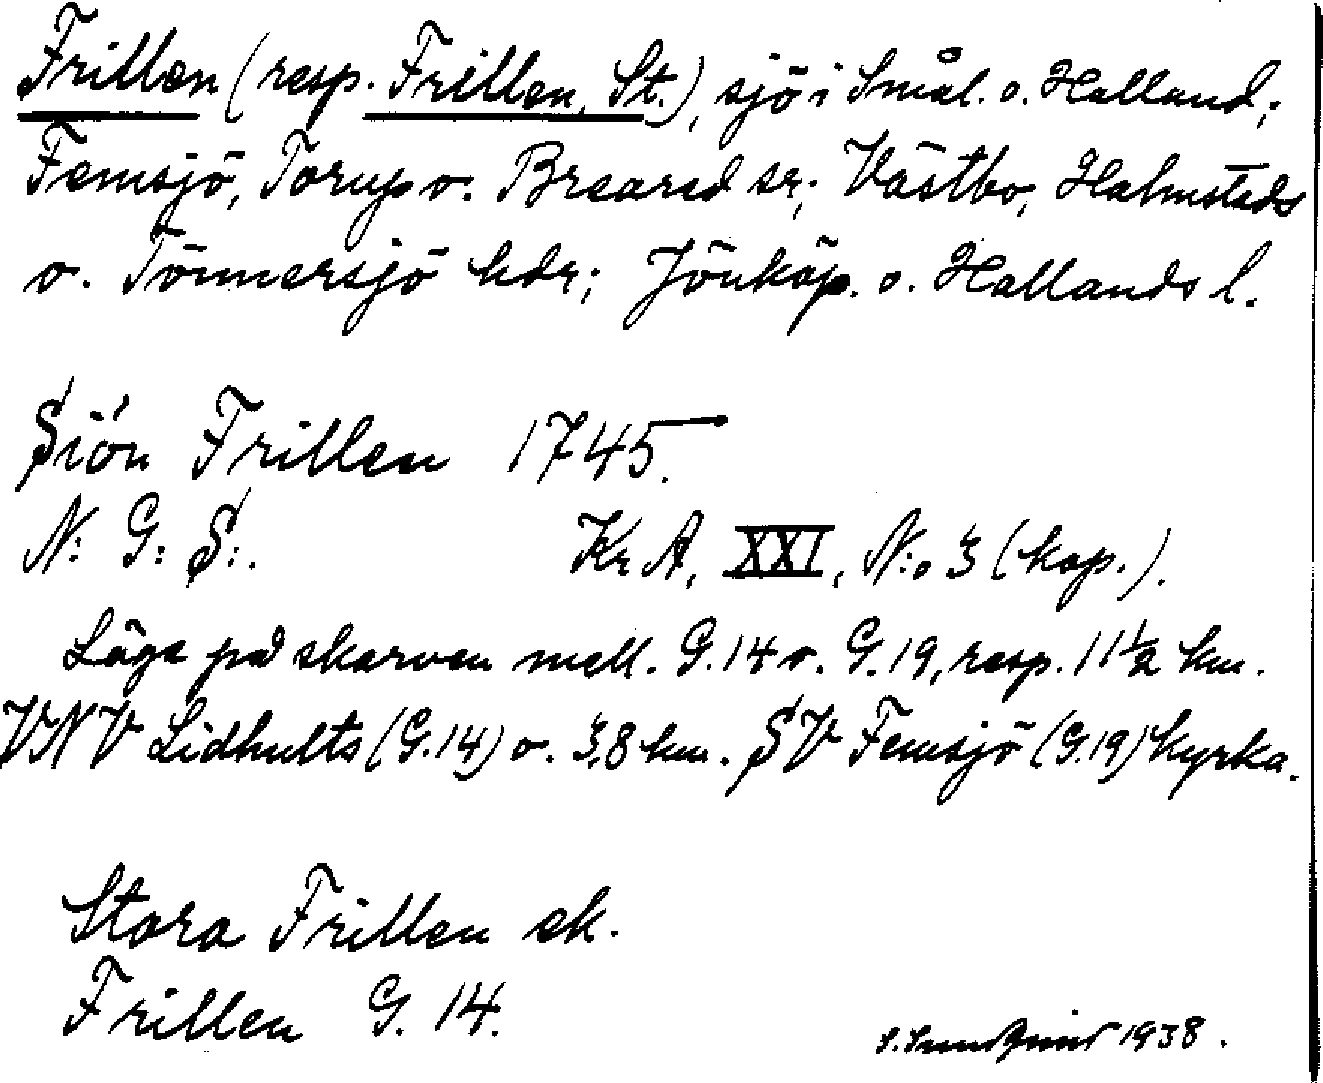 Frillen (resp. Frillen, St.), sjö i Smål. o. Halland;
Femsjö, Torup o. Breared sr; Västbo, Halmstads
o. Tönnersjö hdr; Jönköp. o. Hallands l.
Siön Frillen 1745.
N: G: S:. Kr A, XXI, N:o 3 (kop.).
Läge på skarven mell. G.14 o. G.19, resp. 11 1/2 km.
VNV Lidhults (G.14) o. 3,8 km. SV Femsjö (G.19) kyrka.
Stora Frillen ek.
Frillen G. 14.
1938.